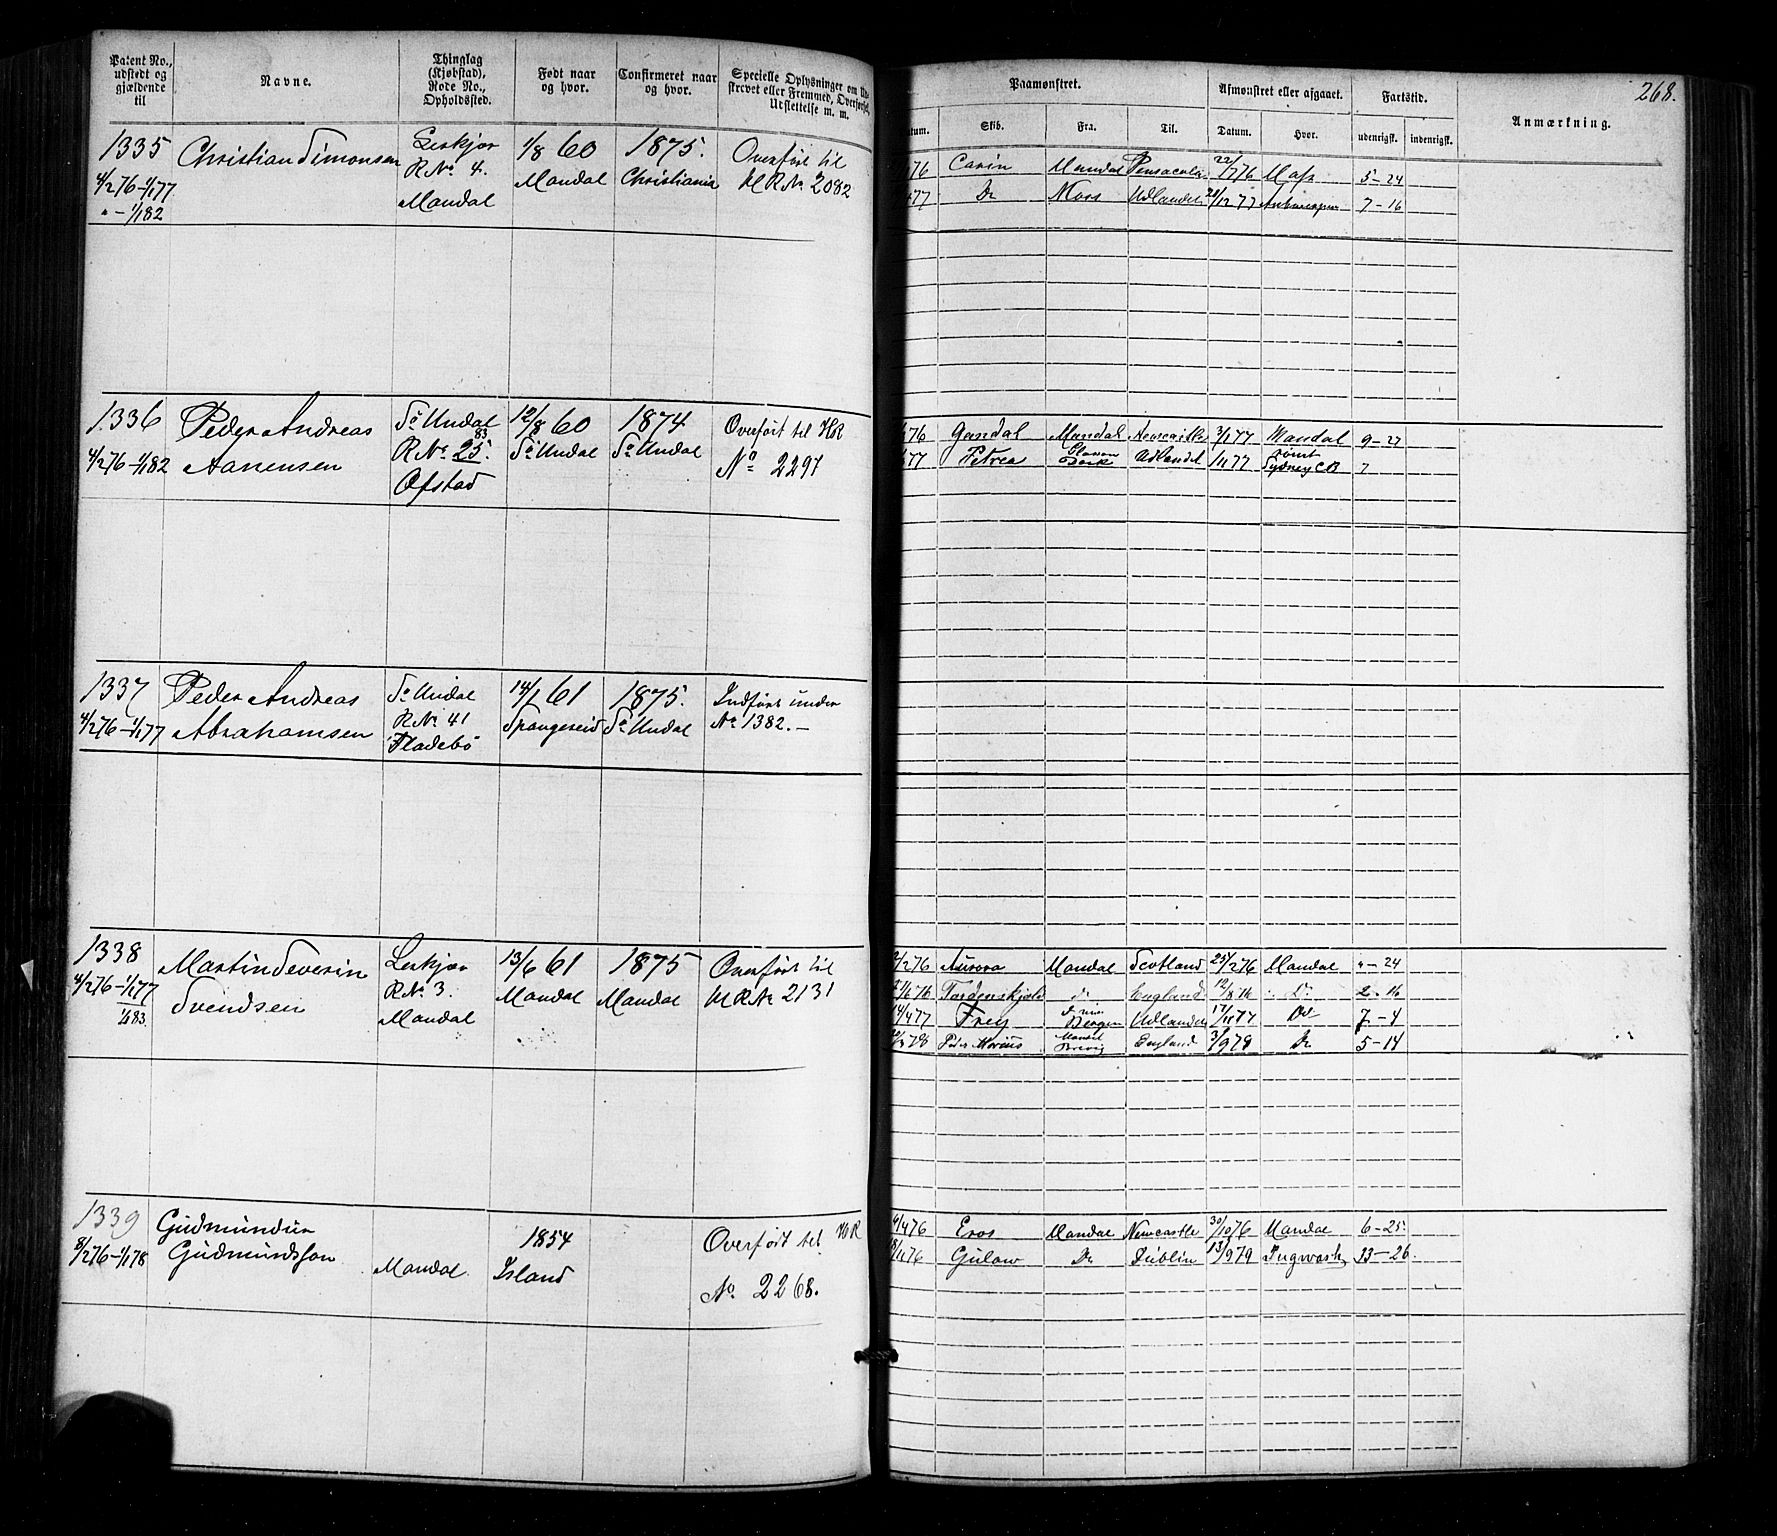 268.
Patent No., udstedt og gjældende til
Navne.
Thinglag (Kjøbstad), Rode No., Opholdssted.
Født naar og hvor.
Confirmeret naar og hvor.
Specielle Oplysninger om Ud- skrevet eller Fremmed, Overførsel, Udslettelse m. m.
Paamønstret.
Afmønstret eller afgaaet.
Fartstid.
Anmærkning.
Skib.
Fra.
Til.
Datum.
Hvor.
udenrigsk.
indenrigsk.
1335
Christian Simonsen
R No 4.
Mandal
1/8 60
Mandal
1875.
Christiania
Overført til
HR No 2082
4/2 76 – 1/1 77
" – 1/1 82
Carin Mandal Pensacola 22/7 76 5-24
Do Moss Udlandet 7-16
1336
Peder Andreas
Aanensen
So Undal
R No 25. 83
Ofstad
12/8 60
So Undal
1874
So Undal
Overført til HR
No 2297
4/2 76 – 1/1 82
Gandal Mandal Newcastle 3/1 77 Mandal 9-27
Petrea Udlandet 77 rømt Sydney CB 7
1337
Peder Andreas
Abrahamsen
So Undal
R No 41
Fladebö
14/1 61
Spangereid
1875.
So Undal
Indført under
No 1382.–
4/2 76 – 1/1 77
1338
Martin Severin
Svendsen
R No 3.
Mandal
13/6 61
Mandal
1875
Mandal
Overført til
HR No 2131
4/2 76 – 1/1 77
1/1 83.
Aurora Mandal Scotland 276 Mandal "-24
Tordenskjold do England 12/8 76 Do 2-16
14/4 77 Frey Bergen Udlandet 77 Do 7-4
78 Peder Marius Mandal Brevig England 3/9 78 Do 5-14
1339
Gudmundur
Gudmundsson
Mandal
1854
Island
Overført til HR
No 2268.
8/2 76 – 1/1 78
Eros Mandal Newcastle 30/10 76 Mandal 6-25
Gulow Do Dublin 13/9 79 Pugwash 33-26